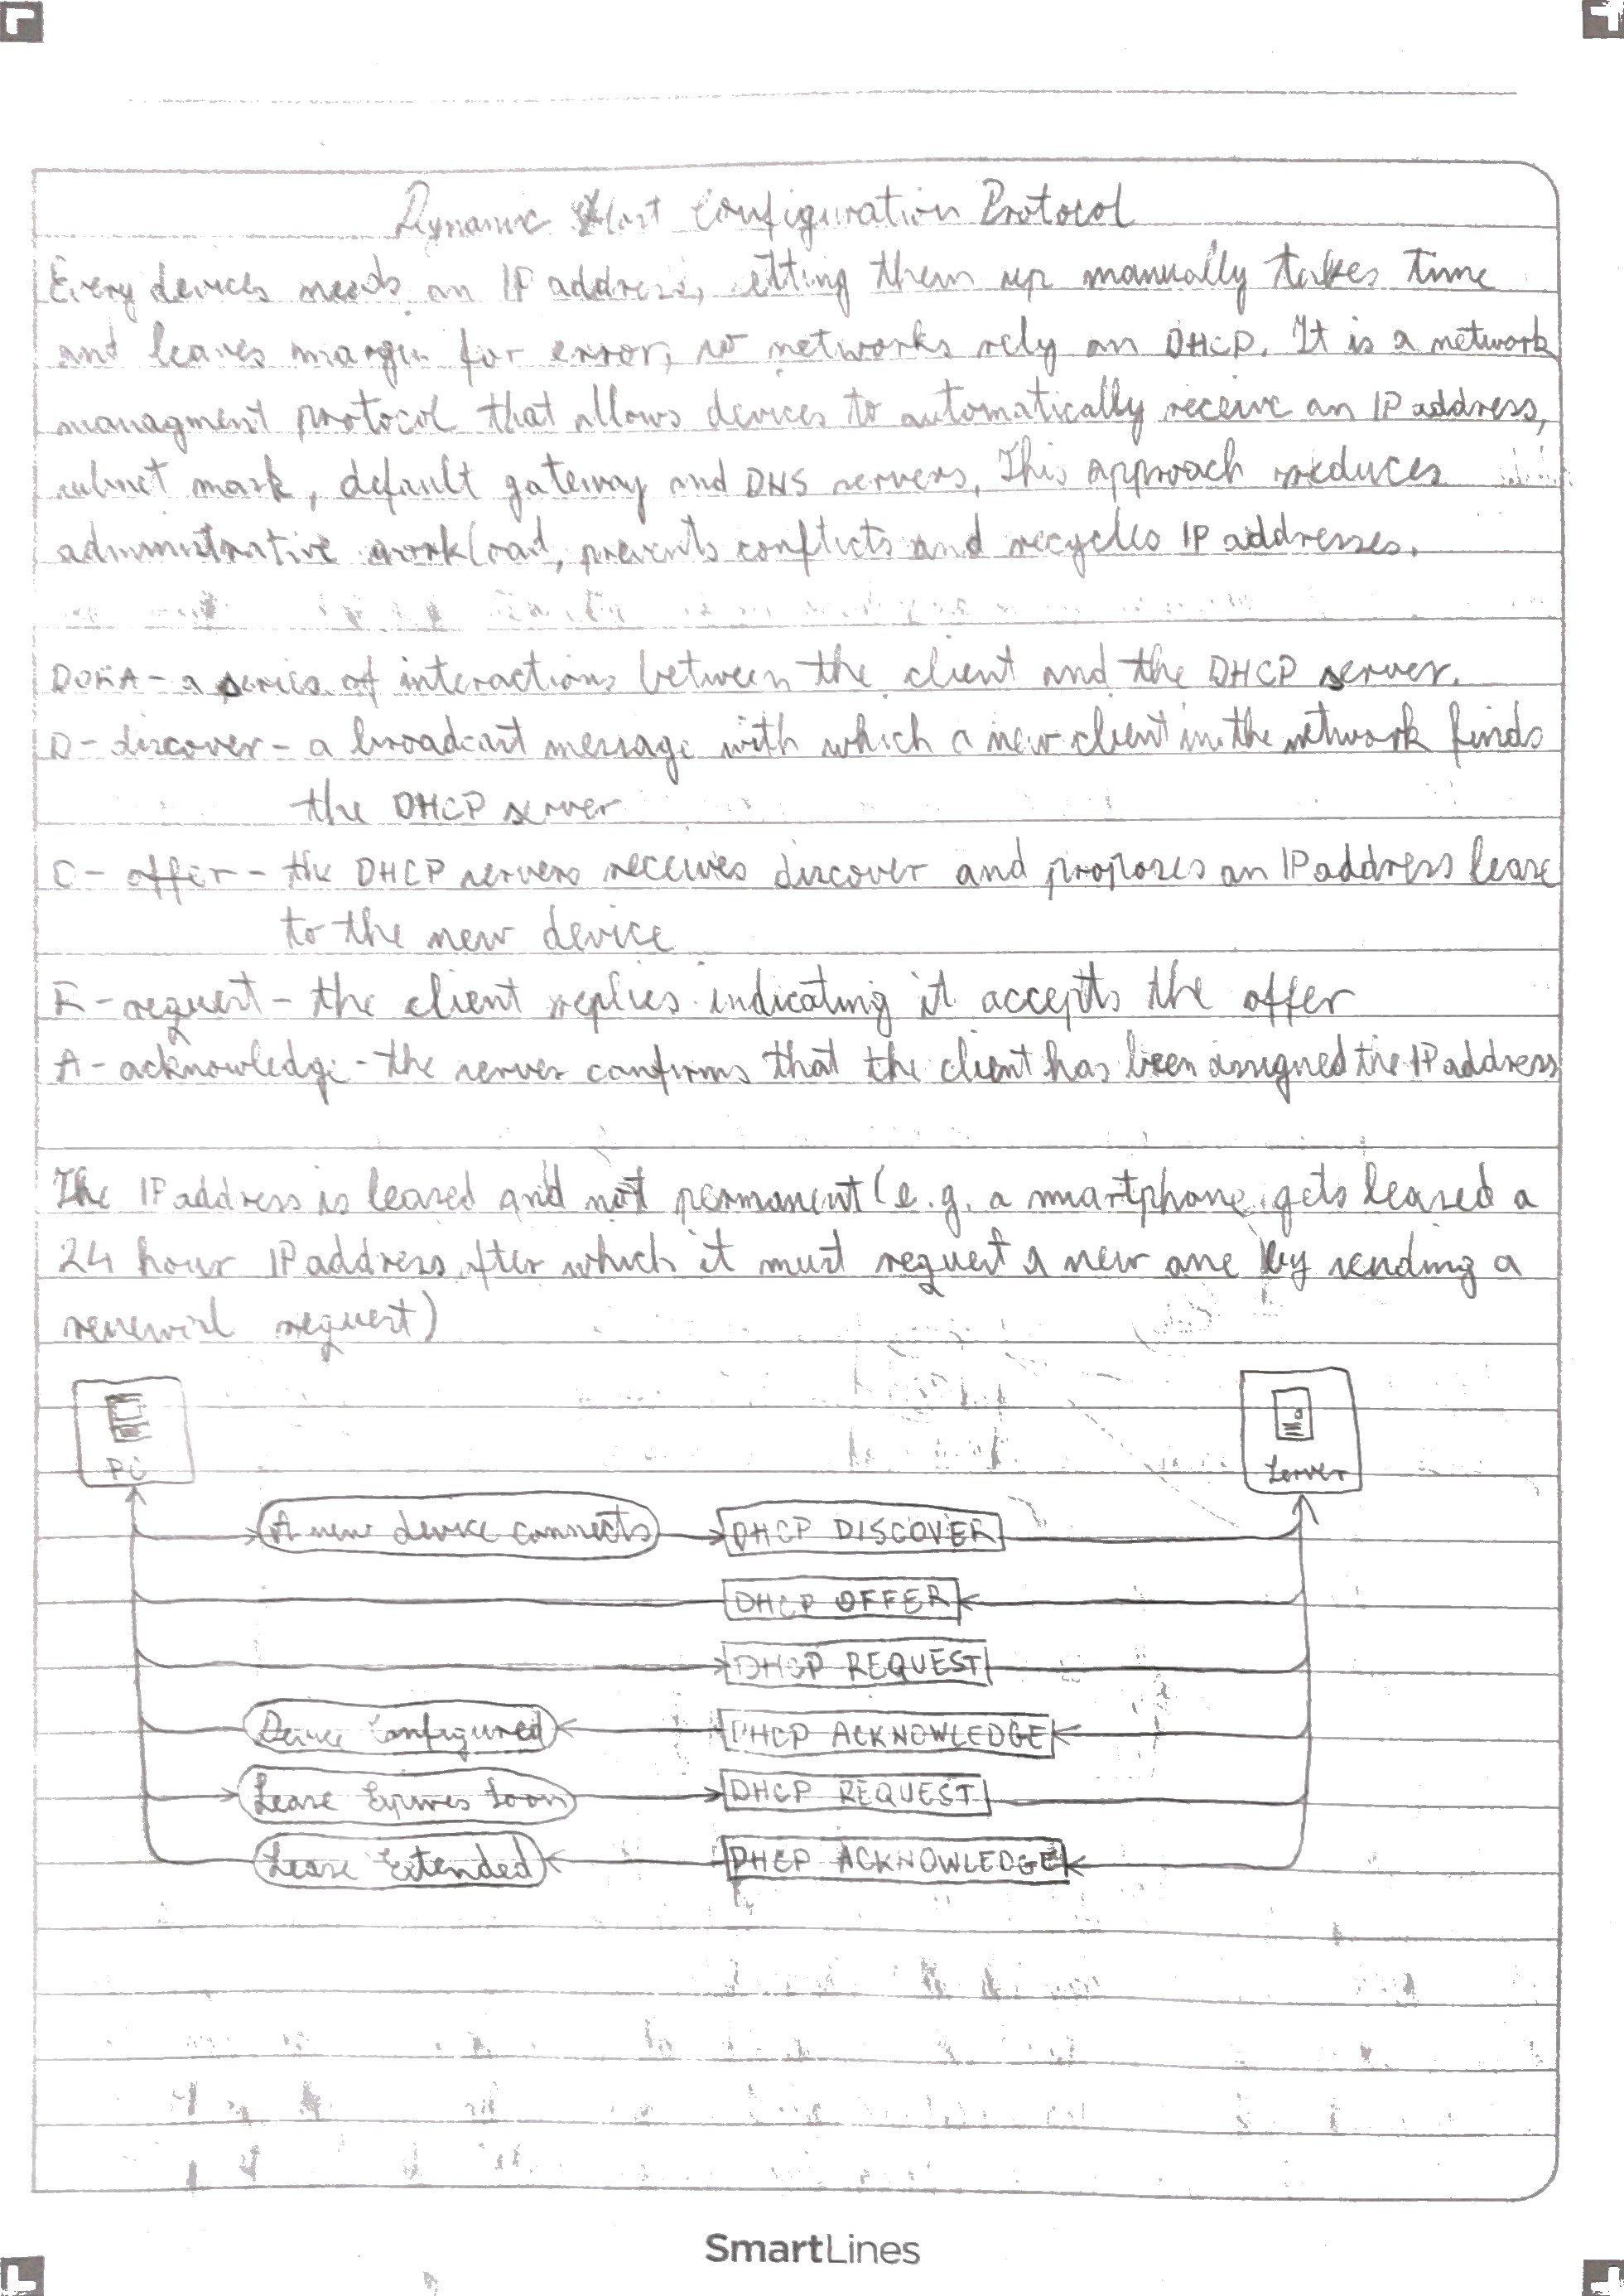 Dynamic Host Configuration Protocol
Every devices needs an IP address, etting them up manually takes time
and leaves margin for error, so networks rely on DHCP. It is a network
managment protocol that allows devices to automatically receive an IP address,
subnet mask, default gateway and DNS servers. This approach reduces
administrative workload, prevents conflicts and recycles IP addresses.
DORA - a series of interactions between the client and the DHCP server.
D - discover - a broadcast message with which a new client in the network finds
the DHCP server
O - offer - the DHCP servers receives discover and proposes an IP address lease
to the new device
R - request - the client replies indicating it accepts the offer
A - acknowledge - the server confirms that the client has been assigned the IP address
The IP address is leased and not permanent (e.g. a smartphone gets leased a
24 hour IP address after which it must request a new one by sending a
renewal request)
PC
Server
A new device connects
DHCP DISCOVER
DHCP OFFER
DHCP REQUEST
Device Configured
DHCP ACKNOWLEDGE
Lease Expires Soon
DHCP REQUEST
Lease Extended
DHCP ACKNOWLEDGE
SmartLines